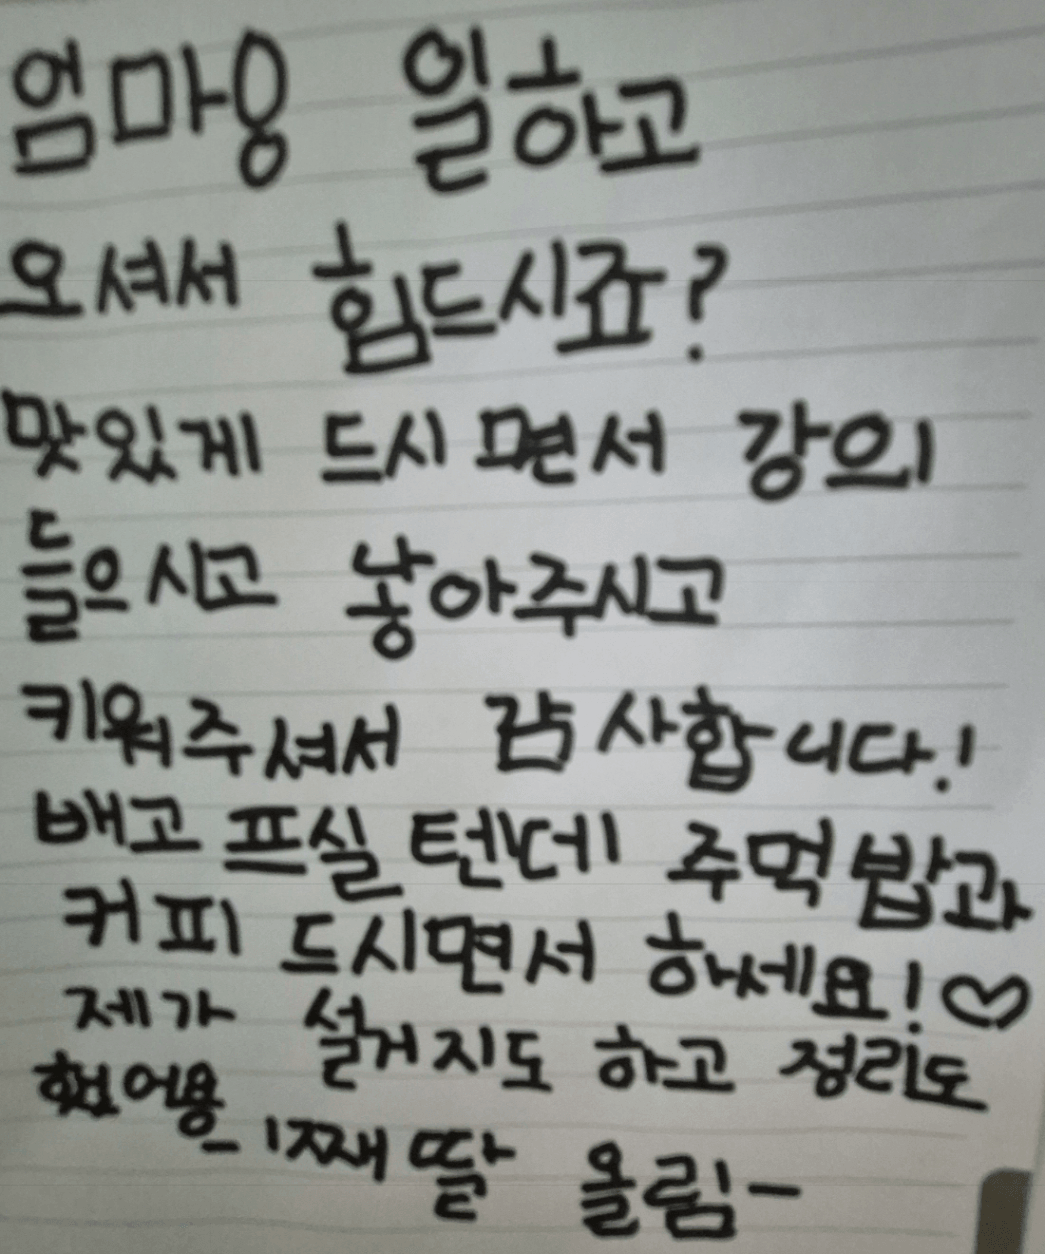 엄마용 일하고
오셔서 힘드시죠?
맛있게 드시면서 강의
들으시고 낳아주시고
키워주셔서 감사합니다!
배고프실텐데 주먹밥과
커피 드시면서 하세요!♡
제가 설거지도 하고 정리도
했어용
- 1째딸 올림 -